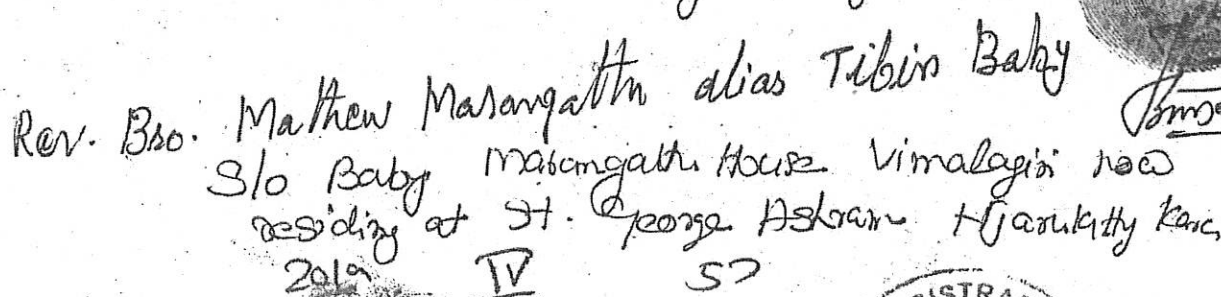 Rev. Bro. Mathew Marangattu alias Tibin Baby
S/o Baby Marangattu House Vimalagiri now
residing at St. George Ashram Njarukatty Kara
2019 IV 57
ISTRA